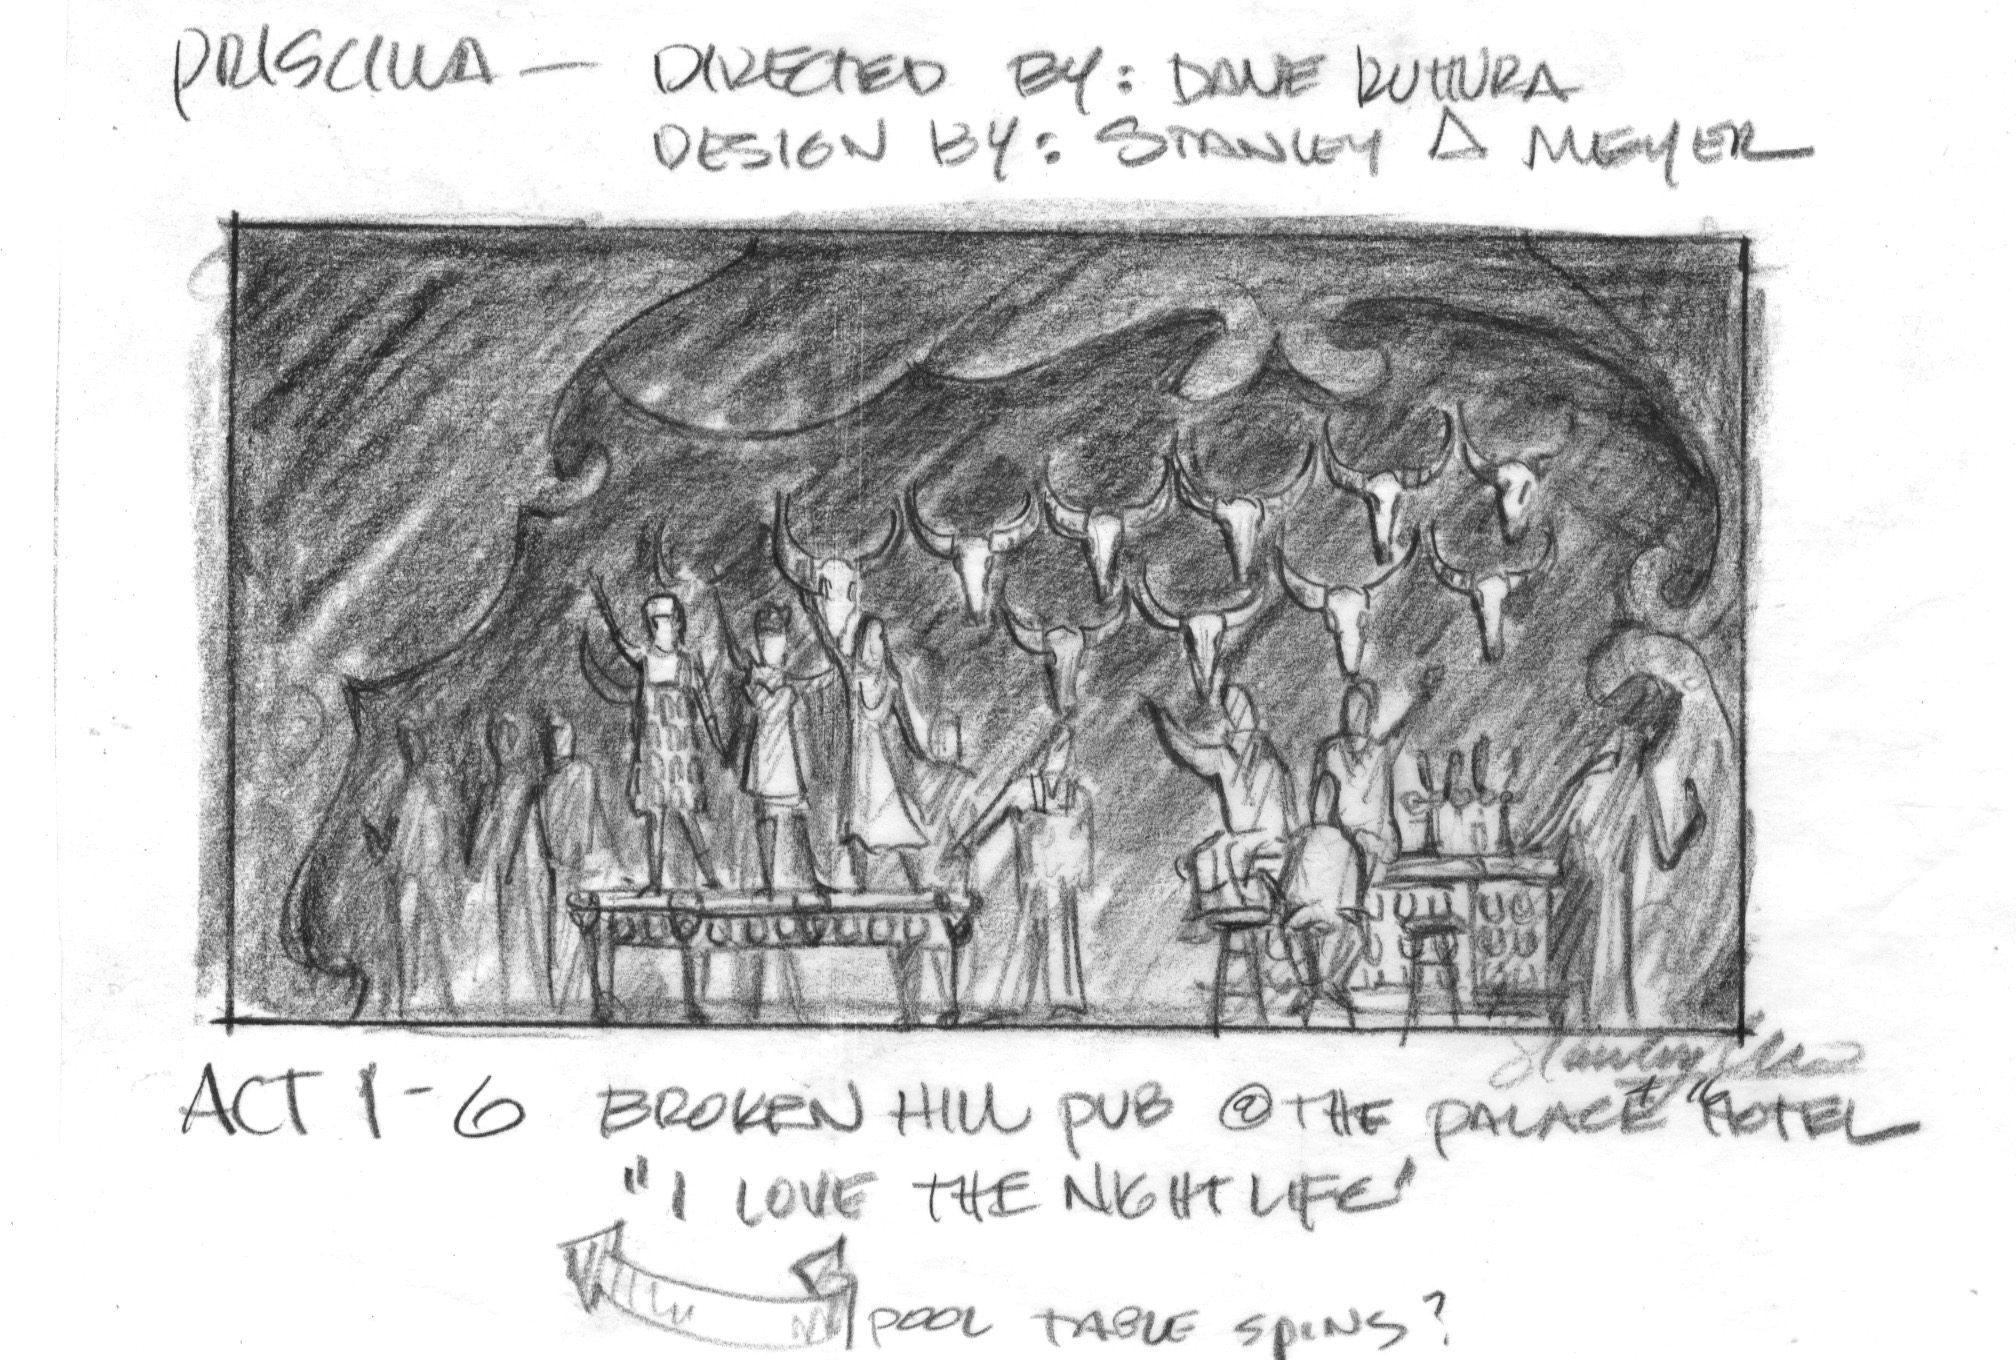 PRISCILLA — DIRECTED BY: DANE
DESIGN BY: STANLEY A MEYER
ACT 1-6 BROKEN HILL PUB @ THE PALACE HOTEL
"I LOVE THE NIGHTLIFE"
POOL TABLE SPINS?